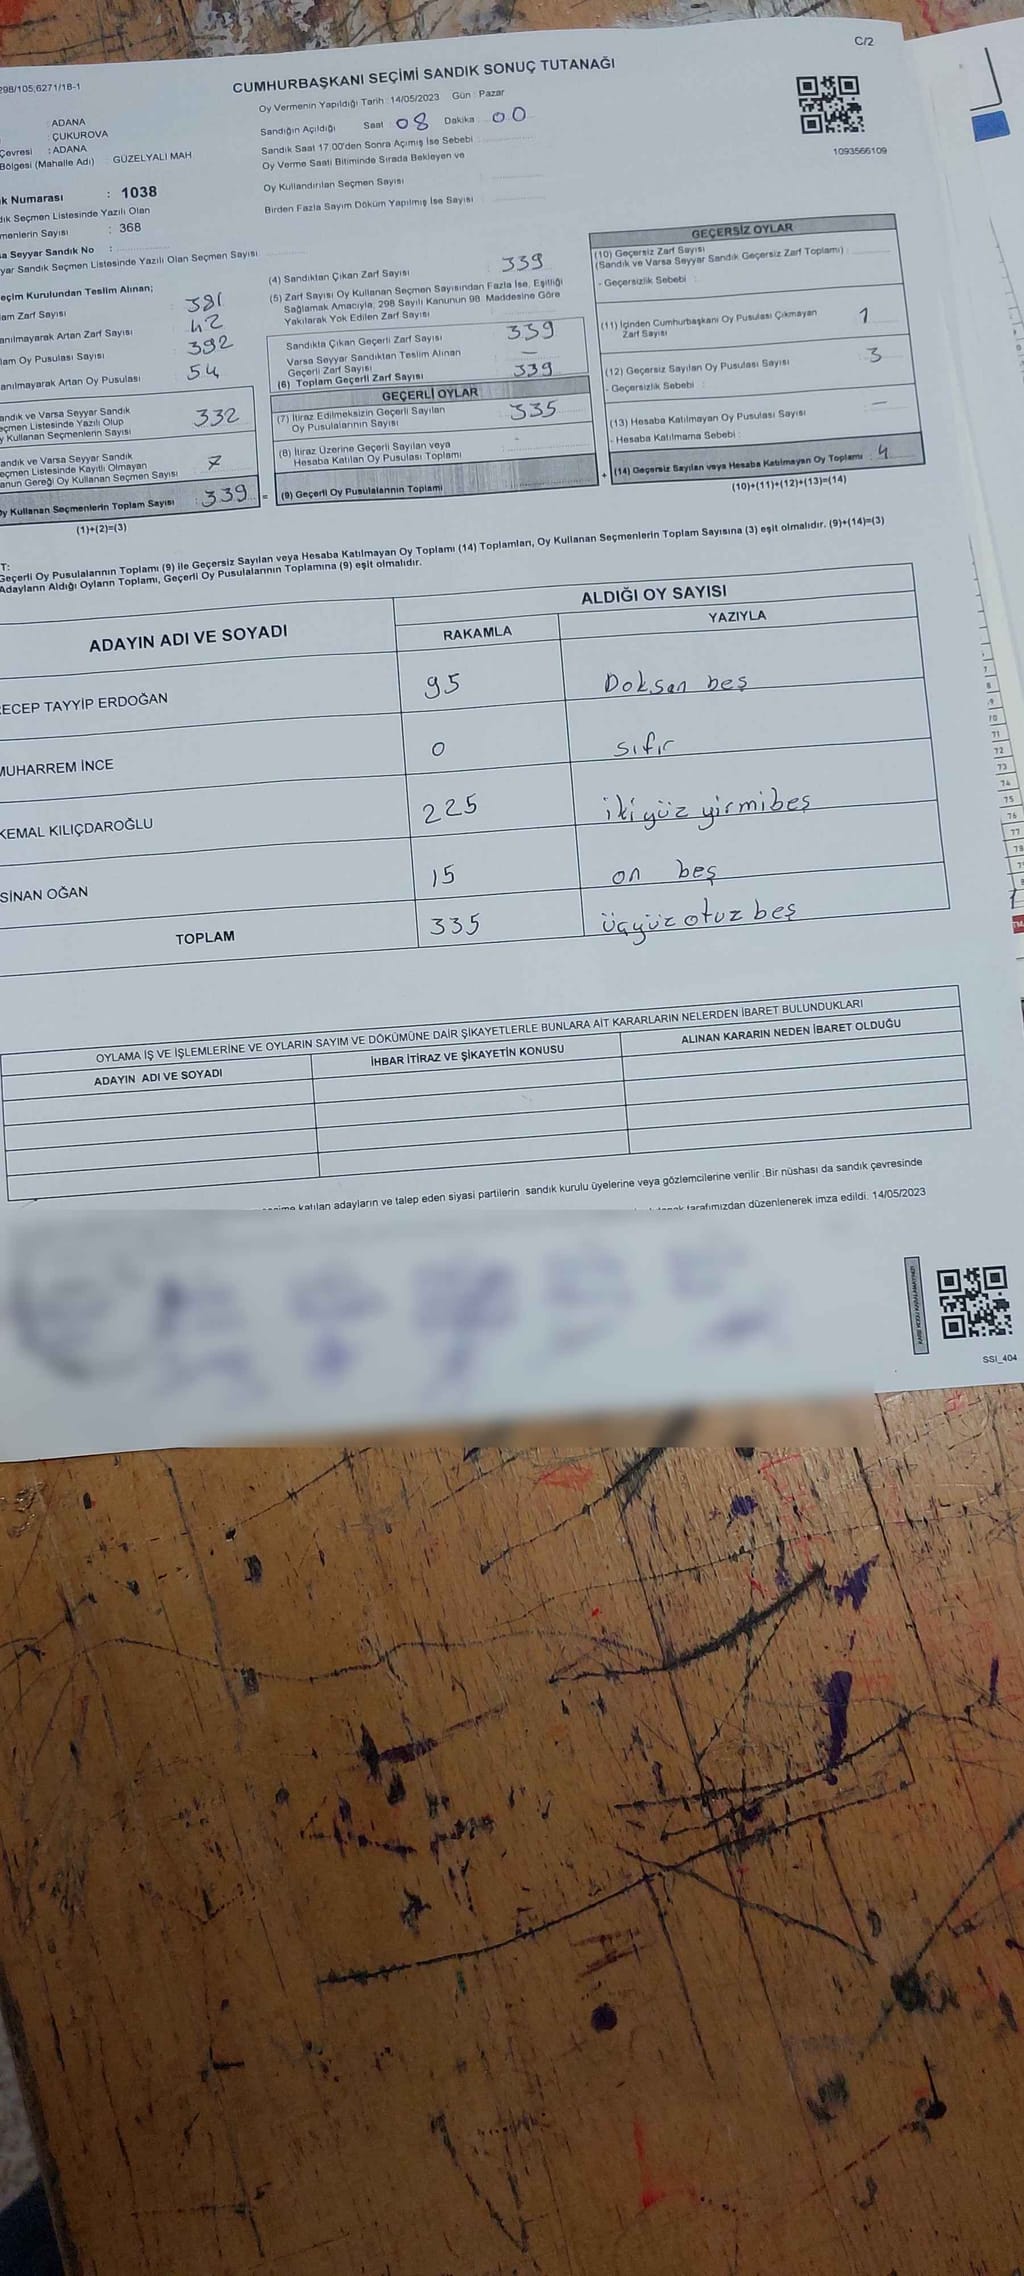 C/2
298/105;6271/18-1
CUMHURBAŞKANI SEÇİMİ SANDIK SONUÇ TUTANAĞI
Oy Vermenin Yapıldığı Tarih : 14/05/2023 Gün : Pazar
: ADANA
: ÇUKUROVA
Çevresi : ADANA
Bölgesi (Mahalle Adı) : GÜZELYALI MAH
Sandığın Açıldığı Saat 08 Dakika 00
Sandık Saat 17:00'den Sonra Açımış İse Sebebi :
Oy Verme Saati Bitiminde Sırada Bekleyen ve
Oy Kullandırılan Seçmen Sayısı
Birden Fazla Sayım Döküm Yapılmış İse Sayısı :
1093566109
k Numarası : 1038
dık Seçmen Listesinde Yazılı Olan
menlerin Sayısı : 368
sa Seyyar Sandık No :
yar Sandık Seçmen Listesinde Yazılı Olan Seçmen Sayısı
eçim Kurulundan Teslim Alınan;
am Zarf Sayısı 381
anılmayarak Artan Zarf Sayısı 42
lam Oy Pusulası Sayısı 392
anılmayarak Artan Oy Pusulası 54
andık ve Varsa Seyyar Sandık
eçmen Listesinde Yazılı Olup
y Kullanan Seçmenlerin Sayısı 332
andık ve Varsa Seyyar Sandık
eçmen Listesinde Kayıtlı Olmayan
anun Gereği Oy Kullanan Seçmen Sayısı 7
Oy Kullanan Seçmenlerin Toplam Sayısı : 339 =
(1)+(2)=(3)
(4) Sandıktan Çıkan Zarf Sayısı : 339
(5) Zarf Sayısı Oy Kullanan Seçmen Sayısından Fazla İse, Eşitliği
Sağlamak Amacıyla; 298 Sayılı Kanunun 98. Maddesine Göre
Yakılarak Yok Edilen Zarf Sayısı
Sandıkta Çıkan Geçerli Zarf Sayısı 339
Varsa Seyyar Sandıktan Teslim Alınan
Geçerli Zarf Sayısı —
(6) Toplam Geçerli Zarf Sayısı 339
GEÇERLİ OYLAR
(7) İtiraz Edilmeksizin Geçerli Sayılan
Oy Pusulalarının Sayısı 335
(8) İtiraz Üzerine Geçerli Sayılan veya
Hesaba Katılan Oy Pusulası Toplamı
(9) Geçerli Oy Pusulalarının Toplamı : +
GEÇERSİZ OYLAR
(10) Geçersiz Zarf Sayısı
(Sandık ve Varsa Seyyar Sandık Geçersiz Zarf Toplamı) :
- Geçersizlik Sebebi :
(11) İçinden Cumhurbaşkanı Oy Pusulası Çıkmayan
Zarf Sayısı 1
(12) Geçersiz Sayılan Oy Pusulası Sayısı 3
- Geçersizlik Sebebi :
(13) Hesaba Katılmayan Oy Pusulası Sayısı —
- Hesaba Katılmama Sebebi :
(14) Geçersiz Sayılan veya Hesaba Katılmayan Oy Toplamı : 4
(10)+(11)+(12)+(13)=(14)
T:
Geçerli Oy Pusulalarının Toplamı (9) ile Geçersiz Sayılan veya Hesaba Katılmayan Oy Toplamı (14) Toplamları, Oy Kullanan Seçmenlerin Toplam Sayısına (3) eşit olmalıdır. (9)+(14)=(3)
Adayların Aldığı Oyların Toplamı, Geçerli Oy Pusulalarının Toplamına (9) eşit olmalıdır.
ADAYIN ADI VE SOYADI
ALDIĞI OY SAYISI
RAKAMLA YAZIYLA
RECEP TAYYİP ERDOĞAN 95 Doksan beş
MUHARREM İNCE 0 sıfır
KEMAL KILIÇDAROĞLU 225 ikiyüz yirmibeş
SİNAN OĞAN 15 on beş
TOPLAM 335 üçyüz otuz beş
OYLAMA İŞ VE İŞLEMLERİNE VE OYLARIN SAYIM VE DÖKÜMÜNE DAİR ŞİKAYETLERLE BUNLARA AİT KARARLARIN NELERDEN İBARET BULUNDUKLARI
ADAYIN ADI VE SOYADI İHBAR İTİRAZ VE ŞİKAYETİN KONUSU ALINAN KARARIN NEDEN İBARET OLDUĞU
katılan adayların ve talep eden siyasi partilerin sandık kurulu üyelerine veya gözlemcilerine verilir .Bir nüshası da sandık çevresinde
tarafımızdan düzenlenerek imza edildi. 14/05/2023
SSI_404
70
71
72
73
74
75
76
77
78